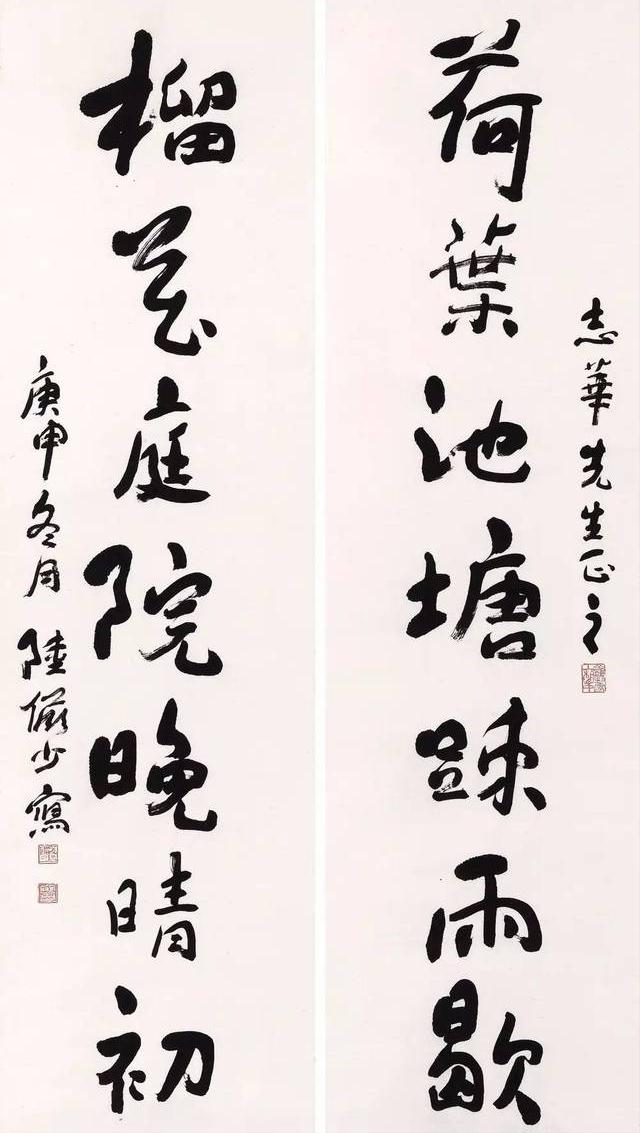 志華先生正之
荷葉池塘踈雨歇
榴花庭院晚晴初
庚申冬月陸儼少寫